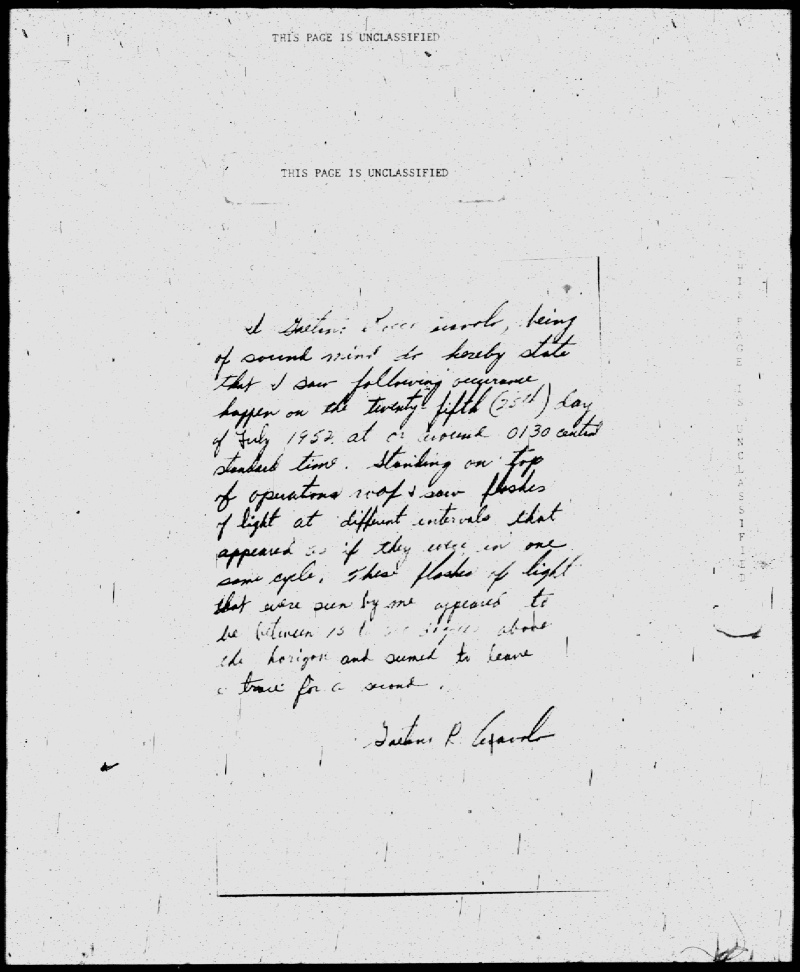 THIS PAGE IS UNCLASSIFIED
THIS PAGE IS UNCLASSIFIED
I Gaetano, being
of sound mind do hereby state
that I saw following occurance
happen on the twenty-fifth (25th) day
of July 1952 at or around 0130 central
standard time. Standing on top
of operations roof I saw flashes
of light at different intervals that
appeared as if they were in one
same cycle. These flashes of light
that were seen by me appeared to
be between 15 degrees above
the horizon and seemed to leave
a trace for a second.
Gaetano R.
THIS PAGE IS UNCLASSIFIED